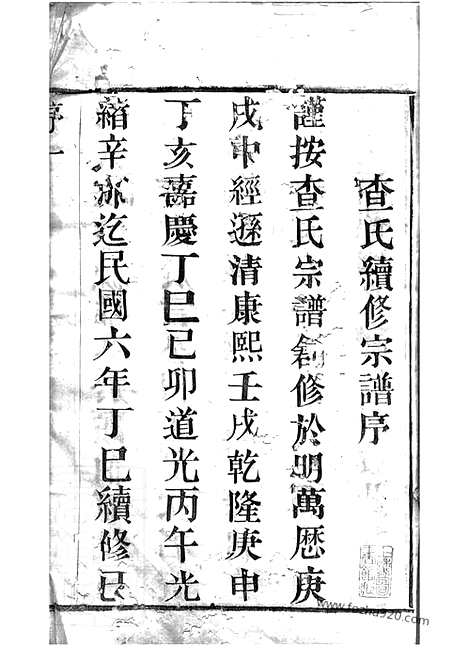 查氏續修宗譜序
謹按查氏宗譜創修於明萬歷庚
戌中經遜清康熙壬戌乾隆庚申
丁亥嘉慶丁巳己卯道光丙午光
緒辛夘迄民國六年丁巳續修已
序一
www.fozhu920.com